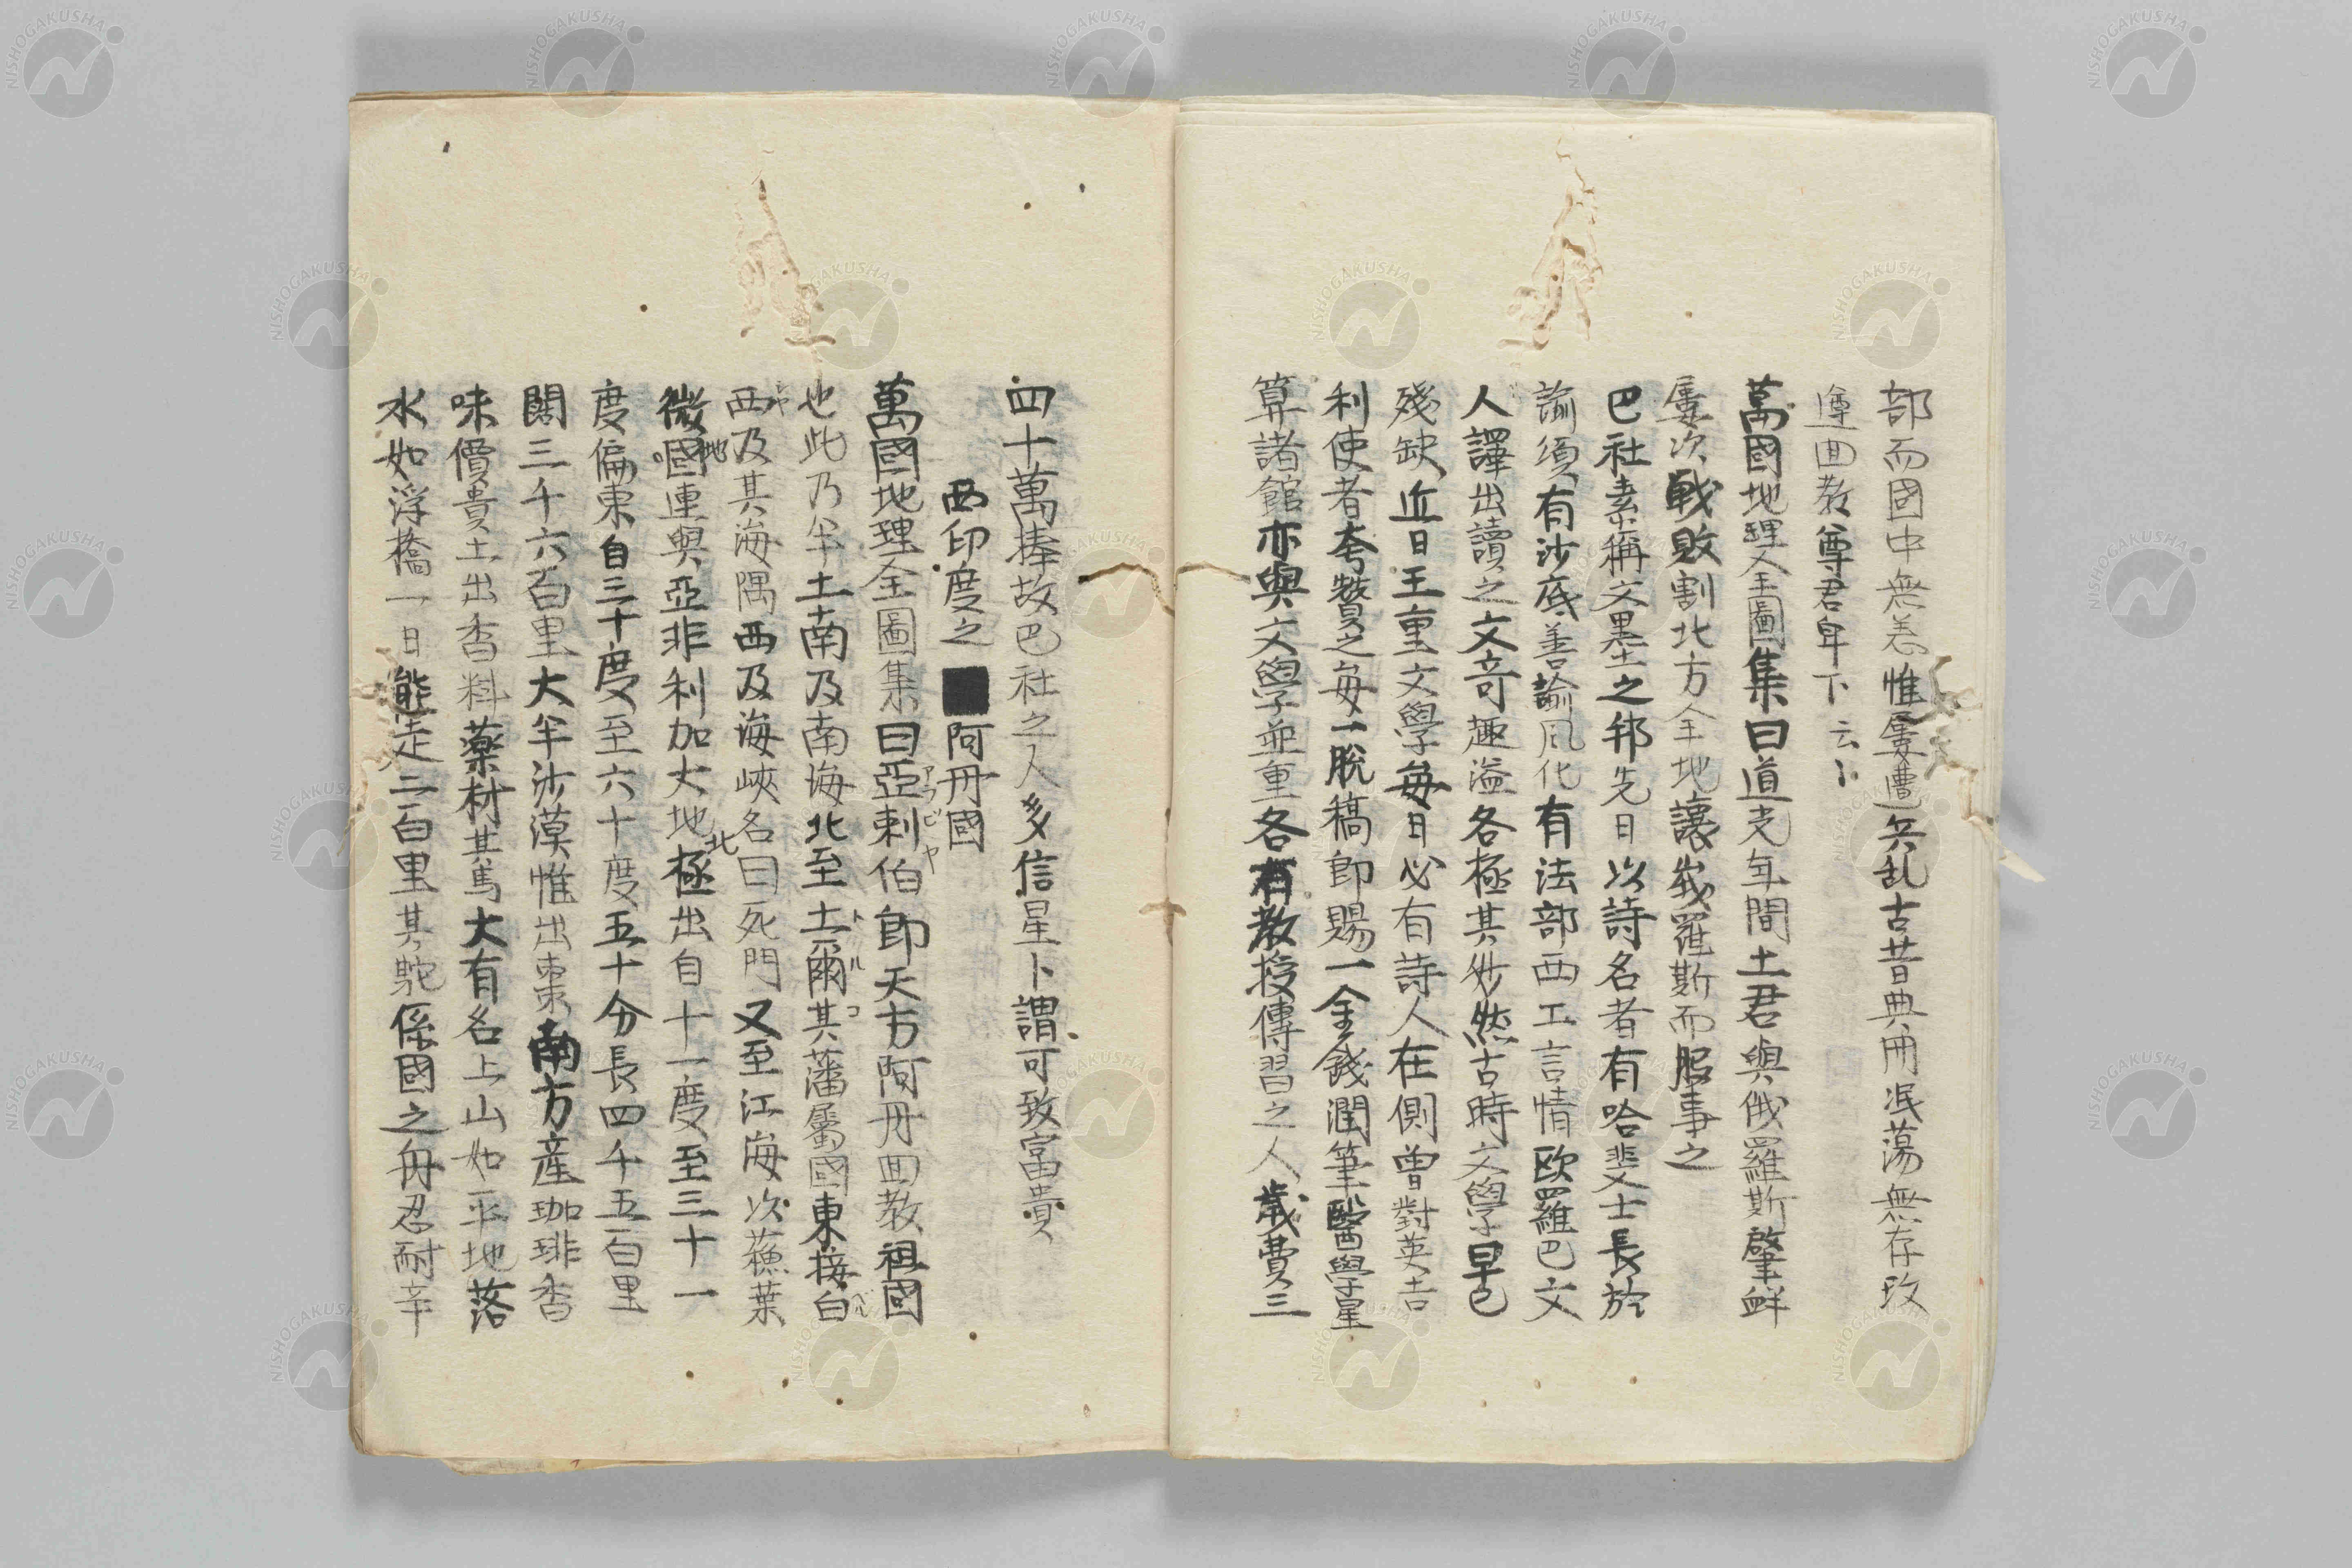 部而國中無恙惟屢遭兵乱古昔典册泯蕩無存攷
遵回教尊君卑下云〻
萬國地理全圖集曰道光年間土君與俄羅斯肇衅
屢次戰敗割北方全地讓峩羅斯而服事之
巴社素稱文墨之邦先日以詩名者有哈斐士長於
諭須有沙底善諭風化有法部西工言情欧羅巴文
人譯出讀之文奇趣溢各極其妙然古時文學早已
殘缺近日王重文學毎日必有詩人在側曽對英吉
利使者夸賛之毎一脫稿即賜一金錢潤筆醫學星
算諸館亦與文學並重各有教授傳習之人歳費三
四十萬捧故巴社之人多信星卜謂可致富貴
西印度之阿丹國
萬國地理全圖集曰亞剌伯即天方阿丹回教祖國
也此乃半土南及南海北至土爾其藩屬國東接白
西及其海隅西及海峽名曰死門又至江海次蘓葉
微地國連與亞非利加大地北極出自十一度至三十一
度偏東自三十度至六十度五十分長四千五百里
闊三千六百里大半沙漠惟出棗南方産珈琲香
味價貴土出香料薬材其馬大有名上山如平地落
水如浮橋一日能走二百里其駝係國之舟忍耐辛